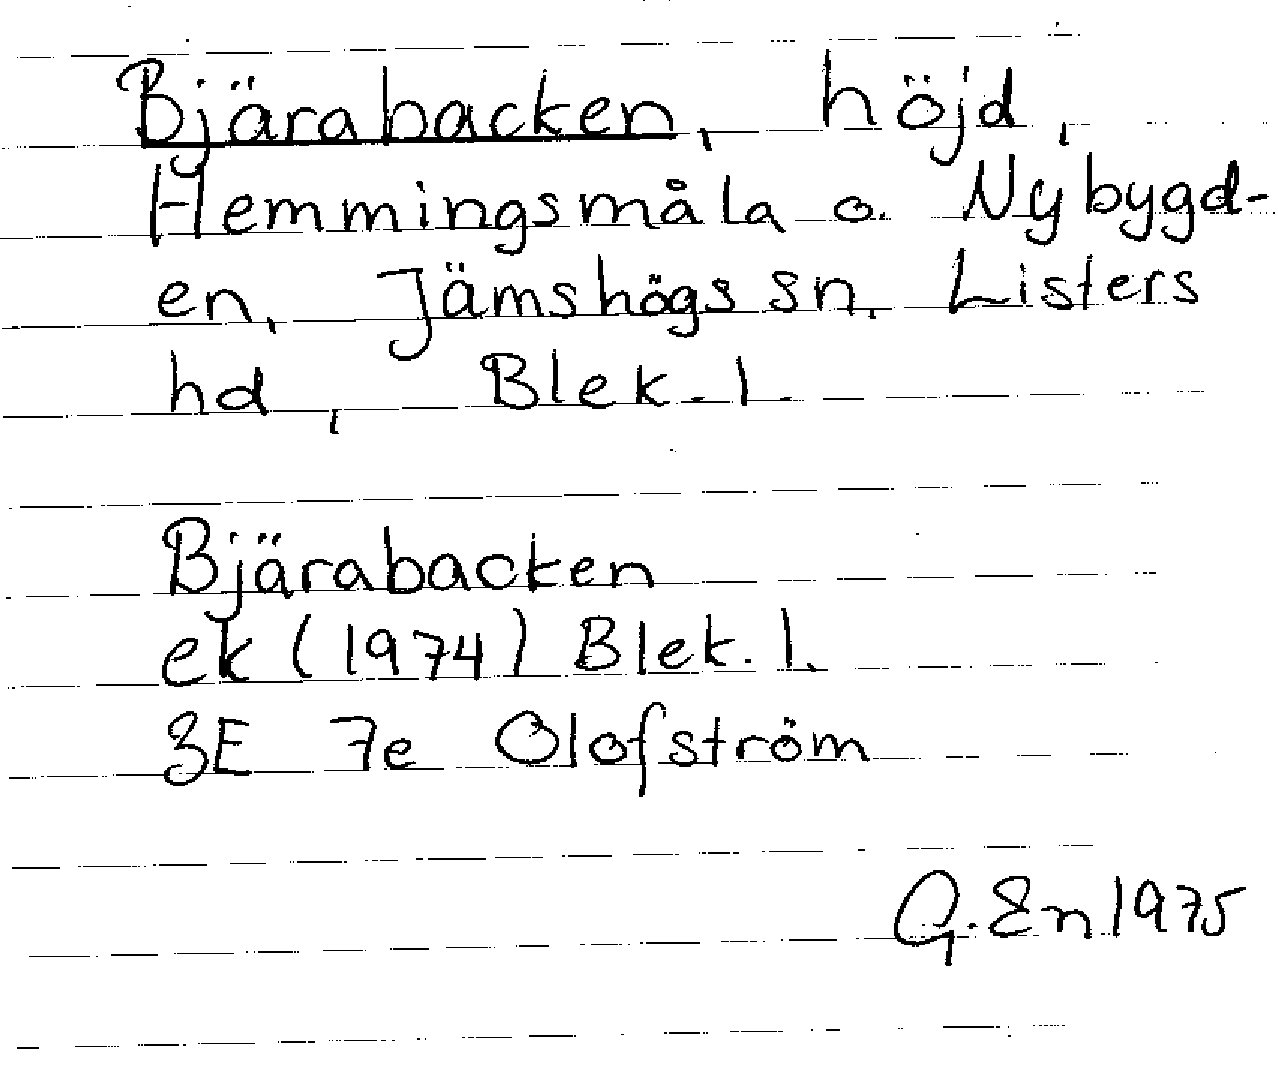 Bjärabacken, höjd,
Hemmingsmåla o. Nybygd-
en, Jämshögs sn, Listers
hd, Blek. l.
Bjärabacken
ek (1974) Blek. l.
3E 7e Olofström
G. En 1975